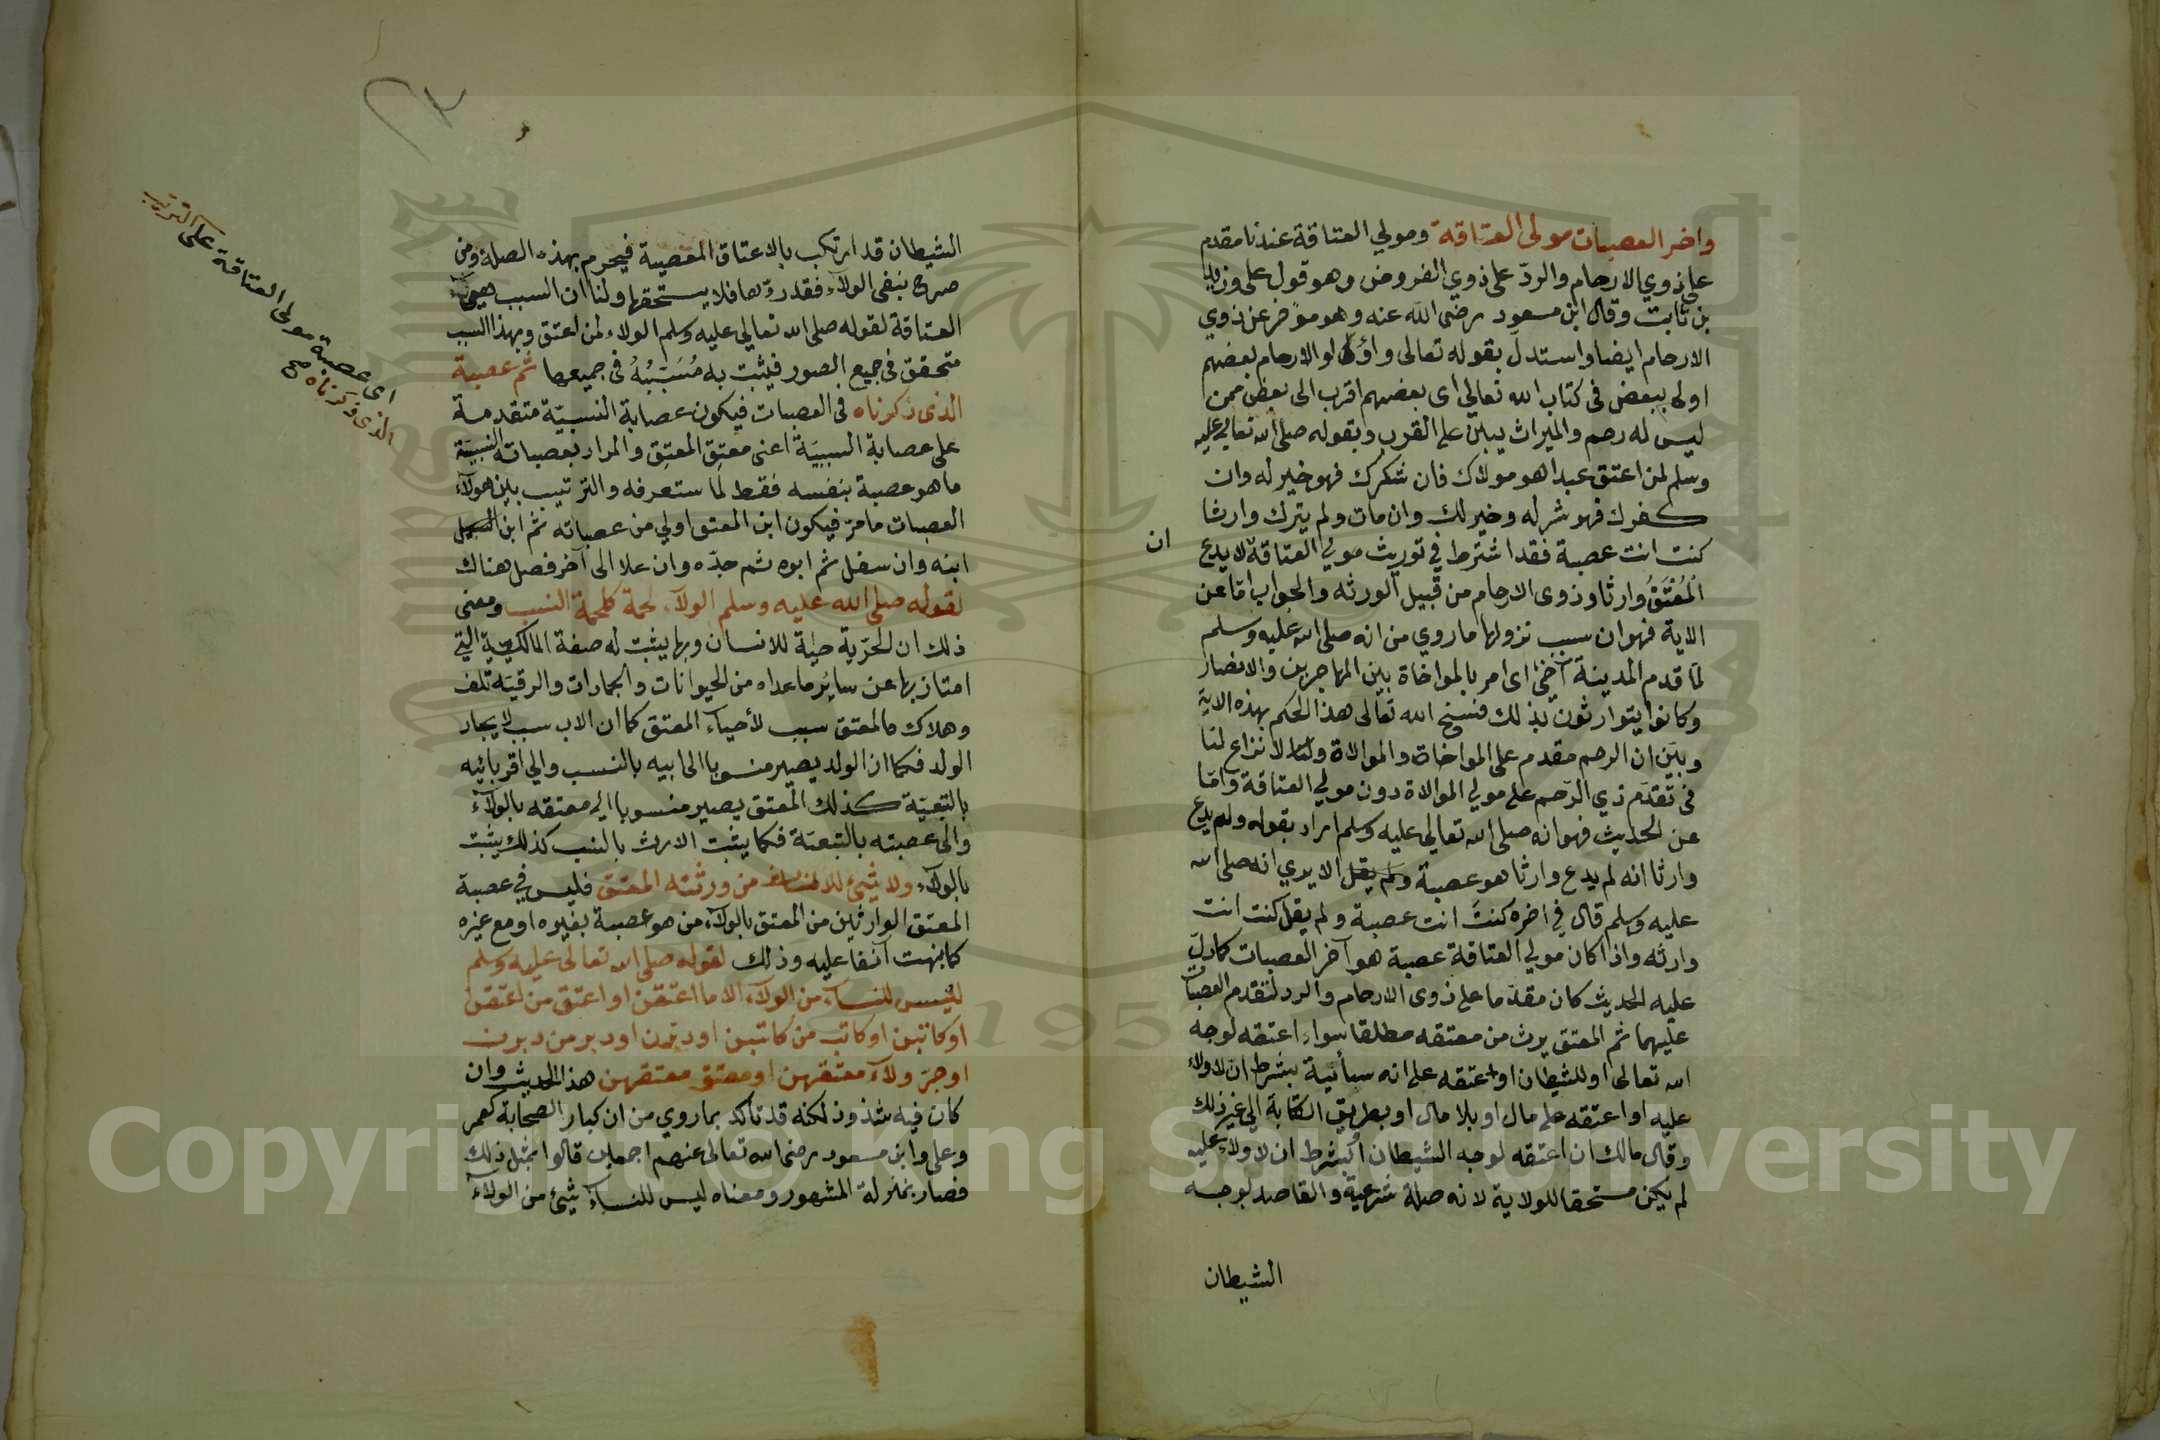 واخر العصبات مولى العتاقة ومولي العتاقة عندنا مقدم
على ذوي الارحام والردّ على ذوي الفروض وهو قول على وزيد
بن ثابت وقال ابن مسعود رضى الله عنه وهو مؤخر عن ذوي
الارحام ايضا واستدل بقوله تعالى واولوا الارحام بعضهم
اولى ببعض فى كتاب الله تعالي اى بعضهم اقرب الى بعض ممن
ليس له رحم والميراث يبنى على القرب وبقوله صلى الله تعالي عليه
وسلم لمن اعتق عبدا هو مولاك فان شكرك فهو خير له وان
كفرك فهو شر له وخير لك وان مات ولم يترك وارثا
كنت انت عصبة فقد اشترط في توريث مولي العتاقة لا يدع
ان
المُعْتَقُ وارثا وذوى الارحام من قبيل الورثه والجواب امّا عن
الاية فهو ان سبب نزولها ما روي من انه صلى الله عليه وسلم
لمّا قدم المدينة آخى اى امر بالمواخاة بين المهاجرين والانصار
وكانوا يتوارثون بذلك فنسخ الله تعالى هذا الحكم بهذه الاية
وبيّن ان الرحم مقدم على المواخاة والموالاة ولا نزاع لنا
فى تقدّم ذي الرّحم على مولي الموالاة دون مولي العتاقة وامّا
عن الحديث فهو انه صلى الله تعالي عليه وسلم اراد بقوله ولم يدع
وارثا انه لم يدع وارثا هو عصبة ولم يقل الا يري انه صلى الله
عليه وسلم قال في اخره كنتَ انت عصبة ولم يقل كنت انت
وارثه واذا كان مولي العتاقة عصبة هو آخر العصبات كما دلّ
عليه الحديث كان مقدّما على ذوى الارحام والرد لتقدم العصبات
عليهما ثم المعتق يرث من معتقه مطلقا سواء اعتقه لوجه
الله تعالى او للشيطان او اعتقه على انه سائبة بشرط ان لا ولاء
عليه او اعتقه على مال او بلا مال او بطريق الكتابة الى غير ذلك
وقال مالك ان اعتقه لوجه الشيطان او بشرط ان لا ولاء عليه
لم يكن مستحقا للولاية لانه صلة شرعية والقاصد لوجه
الشيطان
الشيطان قد ارتكب بالاعتاق المعصية فيحرم بهذه الصلة ومن
صرح بنفى الولآء فقد ردّها فلا يستحقها ولنا ان السبب هو
العتاقة لقوله صلى الله تعالي عليه وسلم الولاء لمن اعتق وبهذا السبب
متحقق فى جميع الصور فيثبت به مُسَبَّبُهُ فى جميعها ثم عصبة
الذى ذكرناه فى العصبات فيكون عصابة النسبيّة متقدمة
على عصابة السببيَة اعنى معتِق المعتِق والمراد بعصباته النسبيَة
ما هو عصبة بنفسه فقط لما ستعرفه والترتيب بين هولآء
العصبات ما مرّ فيكون ابن المعتق اولي من عصباته ثم ابن
ابنه وان سفل ثم ابوه ثم جدّه وان علا الى آخر فصل هناك
لقوله صلى الله عليه وسلم الولآء لحمة كلحمة النسب ومعنى
ذلك ان الحرّية حياة للانسان وبها يثبت له صفة المالكيّة التي
امتاز بها عن سائر ما عداه من الحيوانات والجمادات والرقيَة تلف
وهلاك فالمعتق سبب لأحياء المعتق كما ان الاب سبب لايجاد
الولد فكما ان الولد يصير منسوبا الى ابيه بالنسب والي اقربائيه
بالتبعيَة كذلك المعتق يصير منسوبا الي معتقه بالولآء
والى عصبته بالتبعيّة فكما يثبت الارث بالنسب كذلك يثبت
بالولآء ولا شئ للاناث من ورثته المعتق فليس في عصبة
المعتق الوارثين من المعتق بالولآء من هو عصبة بغيره او مع غيره
كما نبهت آنفا عليه وذلك لقوله صلى الله تعالى عليه وسلم
ليس للنسآء من الولآء الا ما اعتقن او اعتق من اعتقن
او كاتبن او كاتب من كاتبن او دبرن او دبر من دبرن
او جرّ ولآء معتقهن او معتق معتقهن هذا الحديث وان
كان فيه شذوذ لكنه قد تاكد بما روي من ان كبار الصحابة كعمر
وعلى وابن مسعود رضى الله تعالى عنهم اجمعين قالوا بمثل ذلك
فصار بمنزلة المشهور ومعناه ليس للنسآء شئ من الولآء
اى عصبة مولى العتاقة على الترتيب
الذى ذكرناه صح
Copyright © King Saud University
1957